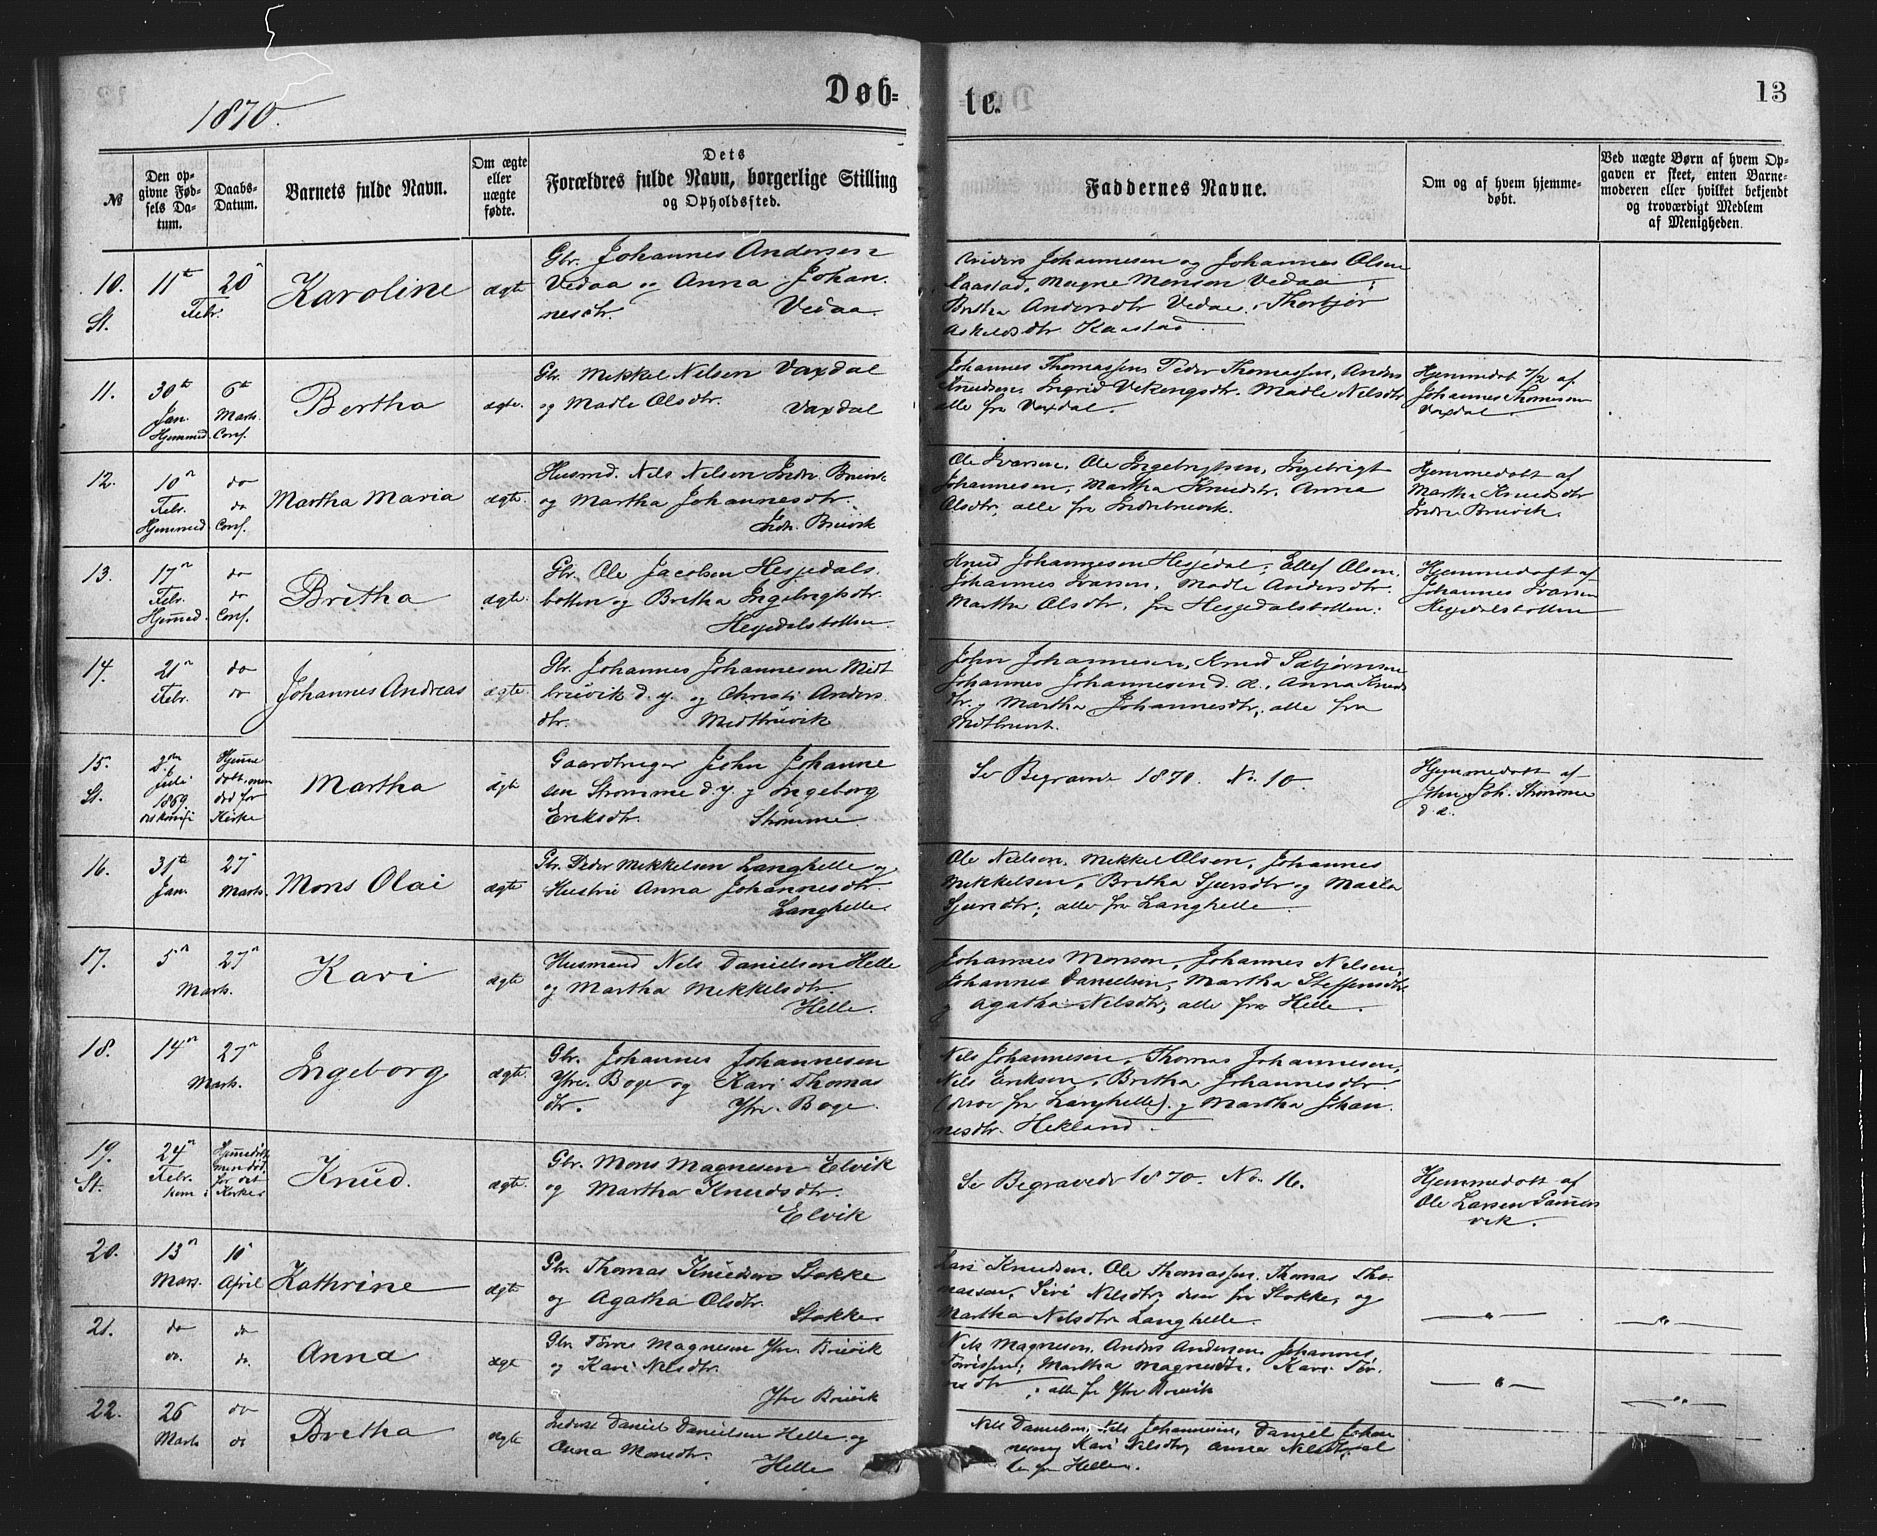 1870.
Døb=
te.
13
№
Den op-
givne Fød-
sels Da-
tum.
Daabs-
Datum.
Barnets fulde Navn.
Om ægte
eller
uægte
fødte.
Dets
Forældres fulde Navn, borgerlige Stilling
og Opholdssted.
Faddernes Navne.
Om og af hvem hjemme-
døbt.
Ved uægte Børn af hvem Op-
gaven er skeet, enten Barne-
moderen eller hvilket bekjendt
og troværdigt Medlem
af Menigheden.
10. St.
11te 20
Febr.
Karoline
ægte
Gbr. Johannes Andersen
Vedaa og Anna Johan.
nesdtr. Vedaa.
Anders Johannesen og Johannes Olsen
Kaastad, Magne Monsen Vedaa,
Britha Andersdtr Vedaa, Thorbjør
Askeldsdtr. Kaastad.
11.
30te
Jan.
Hjemmed.
6te
Marts.
Conf.
Bertha
ægte.
Gbr. Mekkel Nilsen Vaxdal
og Madle Olsdtr. Vaxdal
Johannes Thomassen, Peder Thomassen, Anders
Knudsen, Ingrid Vikengsdtr. Madle Nilsdtr
alle fra Vaxdal.
Hjemmedøbt 7/2 af
Johannes Thomassen
Vaxdal.
12.
10n
Febr.
Hjemmed
do
do
Conf.
Martha Maria
ægte.
Husmd. Nils Nilsen Indr. Bruvik
og Martha Johannesdtr.
Indr. Bruvik
Ole Ivarsen, Ole Ingebrigtsen, Ingebrigt
Johannesen, Martha Knudsdtr. Anna
Olsdtr, alle fra Indrebruvik.
Hjemmedøbt af
Martha Knudsdtr
Indre Bruvik.
13.
17n
Febr.
Hjemmed.
do
do
Conf.
Britha
ægte.
Gbr. Ole Jacobsen Hesjedals.
botten og Britha Ingebrigtsdtr.
Hesjedalsbotten.
Knud Johannesen Hesjedal, Ellef Olsen,
Johannes Ivarsen, Madle Andersdtr.
Martha Olsdtr, fra Hesjedalsbotten.
Hjemmedøbt af
Johannes Ivarsen
Hesjedalsbotten
14.
21n
Febr.
do
do
Johannes Andreas
ægte
Gbr. Johannes Johannesen Midt
bruvik d. y. og Christi Anders
dtr. Midtbruvik
John Johannesen, Knud Sæbjørnsen
Johannes Johannesen d. æ., Anna Knuds
dtr. og Martha Johannesdtr, alle fra
Midtbruvik.
15. St.
Juli
1869
Hjemme
døbt, men
død for
Kirke
Martha
ægte
Gaardbruger John Johanne
sen Strømme d. y. og Ingeborg
Eriksdtr. Strømme.
Se Begravne 1870. No. 10.
Hjemmedøbt af
John Joh. Strømme
d. æ.
16.
31te
Jan.
27
Marts.
Mons Olai
ægte
Gbr. Peder Mekkelsen Langhelle og
Hustru Anna Johannesdtr
Langhelle.
Ole Nielsen, Mekkel Olsen, Johannes
Mekkelsen, Britha Sjursdtr og Marta
Sjursdtr, alle fra Langhelle.
17.
5n 27n
Marts.
Kari
ægte
Husmand Nils Danielsen Helle
og Martha Mekkelsdtr.
Helle.
Johannes Monsen, Johannes Nilsen,
Johannes Danielsen, Martha Steffensdtr
og Agatha Nilsdtr, alle fra Helle.
18.
14n 27n
Marts.
Ingeborg
ægte.
Gbr. Johannes Johannesen
Ytre. Boge og Kari Thomas
dtr. Ytre. Boge.
Nils Johannesen, Thomas Johannesen,
Nils Eriksen, Britha Johannesdtr.
(disse fra Langhelle). og Martha Johan.
nesdtr. Hekland.
19. St.
24n
Febr.
Hjemmedøbt,
men død
før det
kom i Kirken
Knud.
ægte.
Gbr. Mons Magnesen Elvik
og Martha Knudsdtr.
Elvik
Se Begravede 1870. No. 16.
Hjemmedøbt af
Ole Larsen
vik.
20.
13n
Mars.
10
April
Kathrine
ægte
Gbr. Thomas Knudsen Stokke
og Agatha Olsdtr.
Stokke.
Lars Knudsen, Ole Thomassen, Thomas Tho-
massen, Siri Nilsdtr, disse fra Stokke, og
Martha Nilsdtr Langhelle.
— " —
— " —
21.
do
do.
do
do.
Anna
ægte
Gbr. Tørris Magnesen Ytre Bruvik
og Kari Nilsdtr.
Ytre Bruvik
Nils Magnesen, Anders Andersen, Johannes
Tørrissen, Martha Magnesdtr. Kari Tør-
risdtr, alle fra Ytre Bruvik
— " —
— " —
22.
26
Marts
do
do
Britha
ægte
Inderst Daniel Danielsen Helle og
Anna Monsdtr.
Helle
Nils Danielsen, Nils Johannesen, Daniel Johan
nesen, Kari Nilsdtr, Anna Nilsdtr, al
le fra Helle.